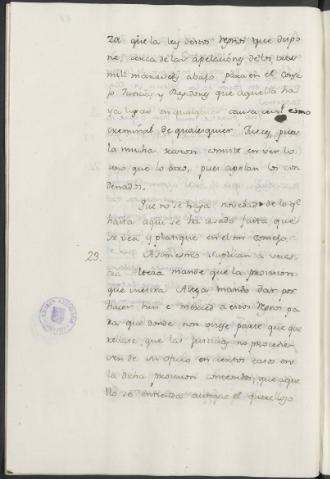 za que la ley destos Reynos que dispo
ne, cerca de las apelaciones de los diez
mill maravedis abajo, para en el conse
jo Justicia, y Regidores que aquella ha
ya lugar en qualquier causa civil como
creminal de qualesquier Juezes, pues
la mucha razon consiste en ven lo
uno que lo otro, pues apelan los con
denados.
Que no se haga novedad de lo qe
hasta aqui se ha usado hasta que
se vea, y platique en el ntro consejo.
23. Asimesmo suplican a vues
tra Alteza mande que la provision
que vuestra Alteza mandó dar por
hacer bien e merced a estos Reynos pa
ra que donde non oviese parte que que
rellase, que las Justicias no procedie
sen de su oficio, en ciertos casos en
la dicha provision contenidos, que aque
llo se entienda aunque el querelloso